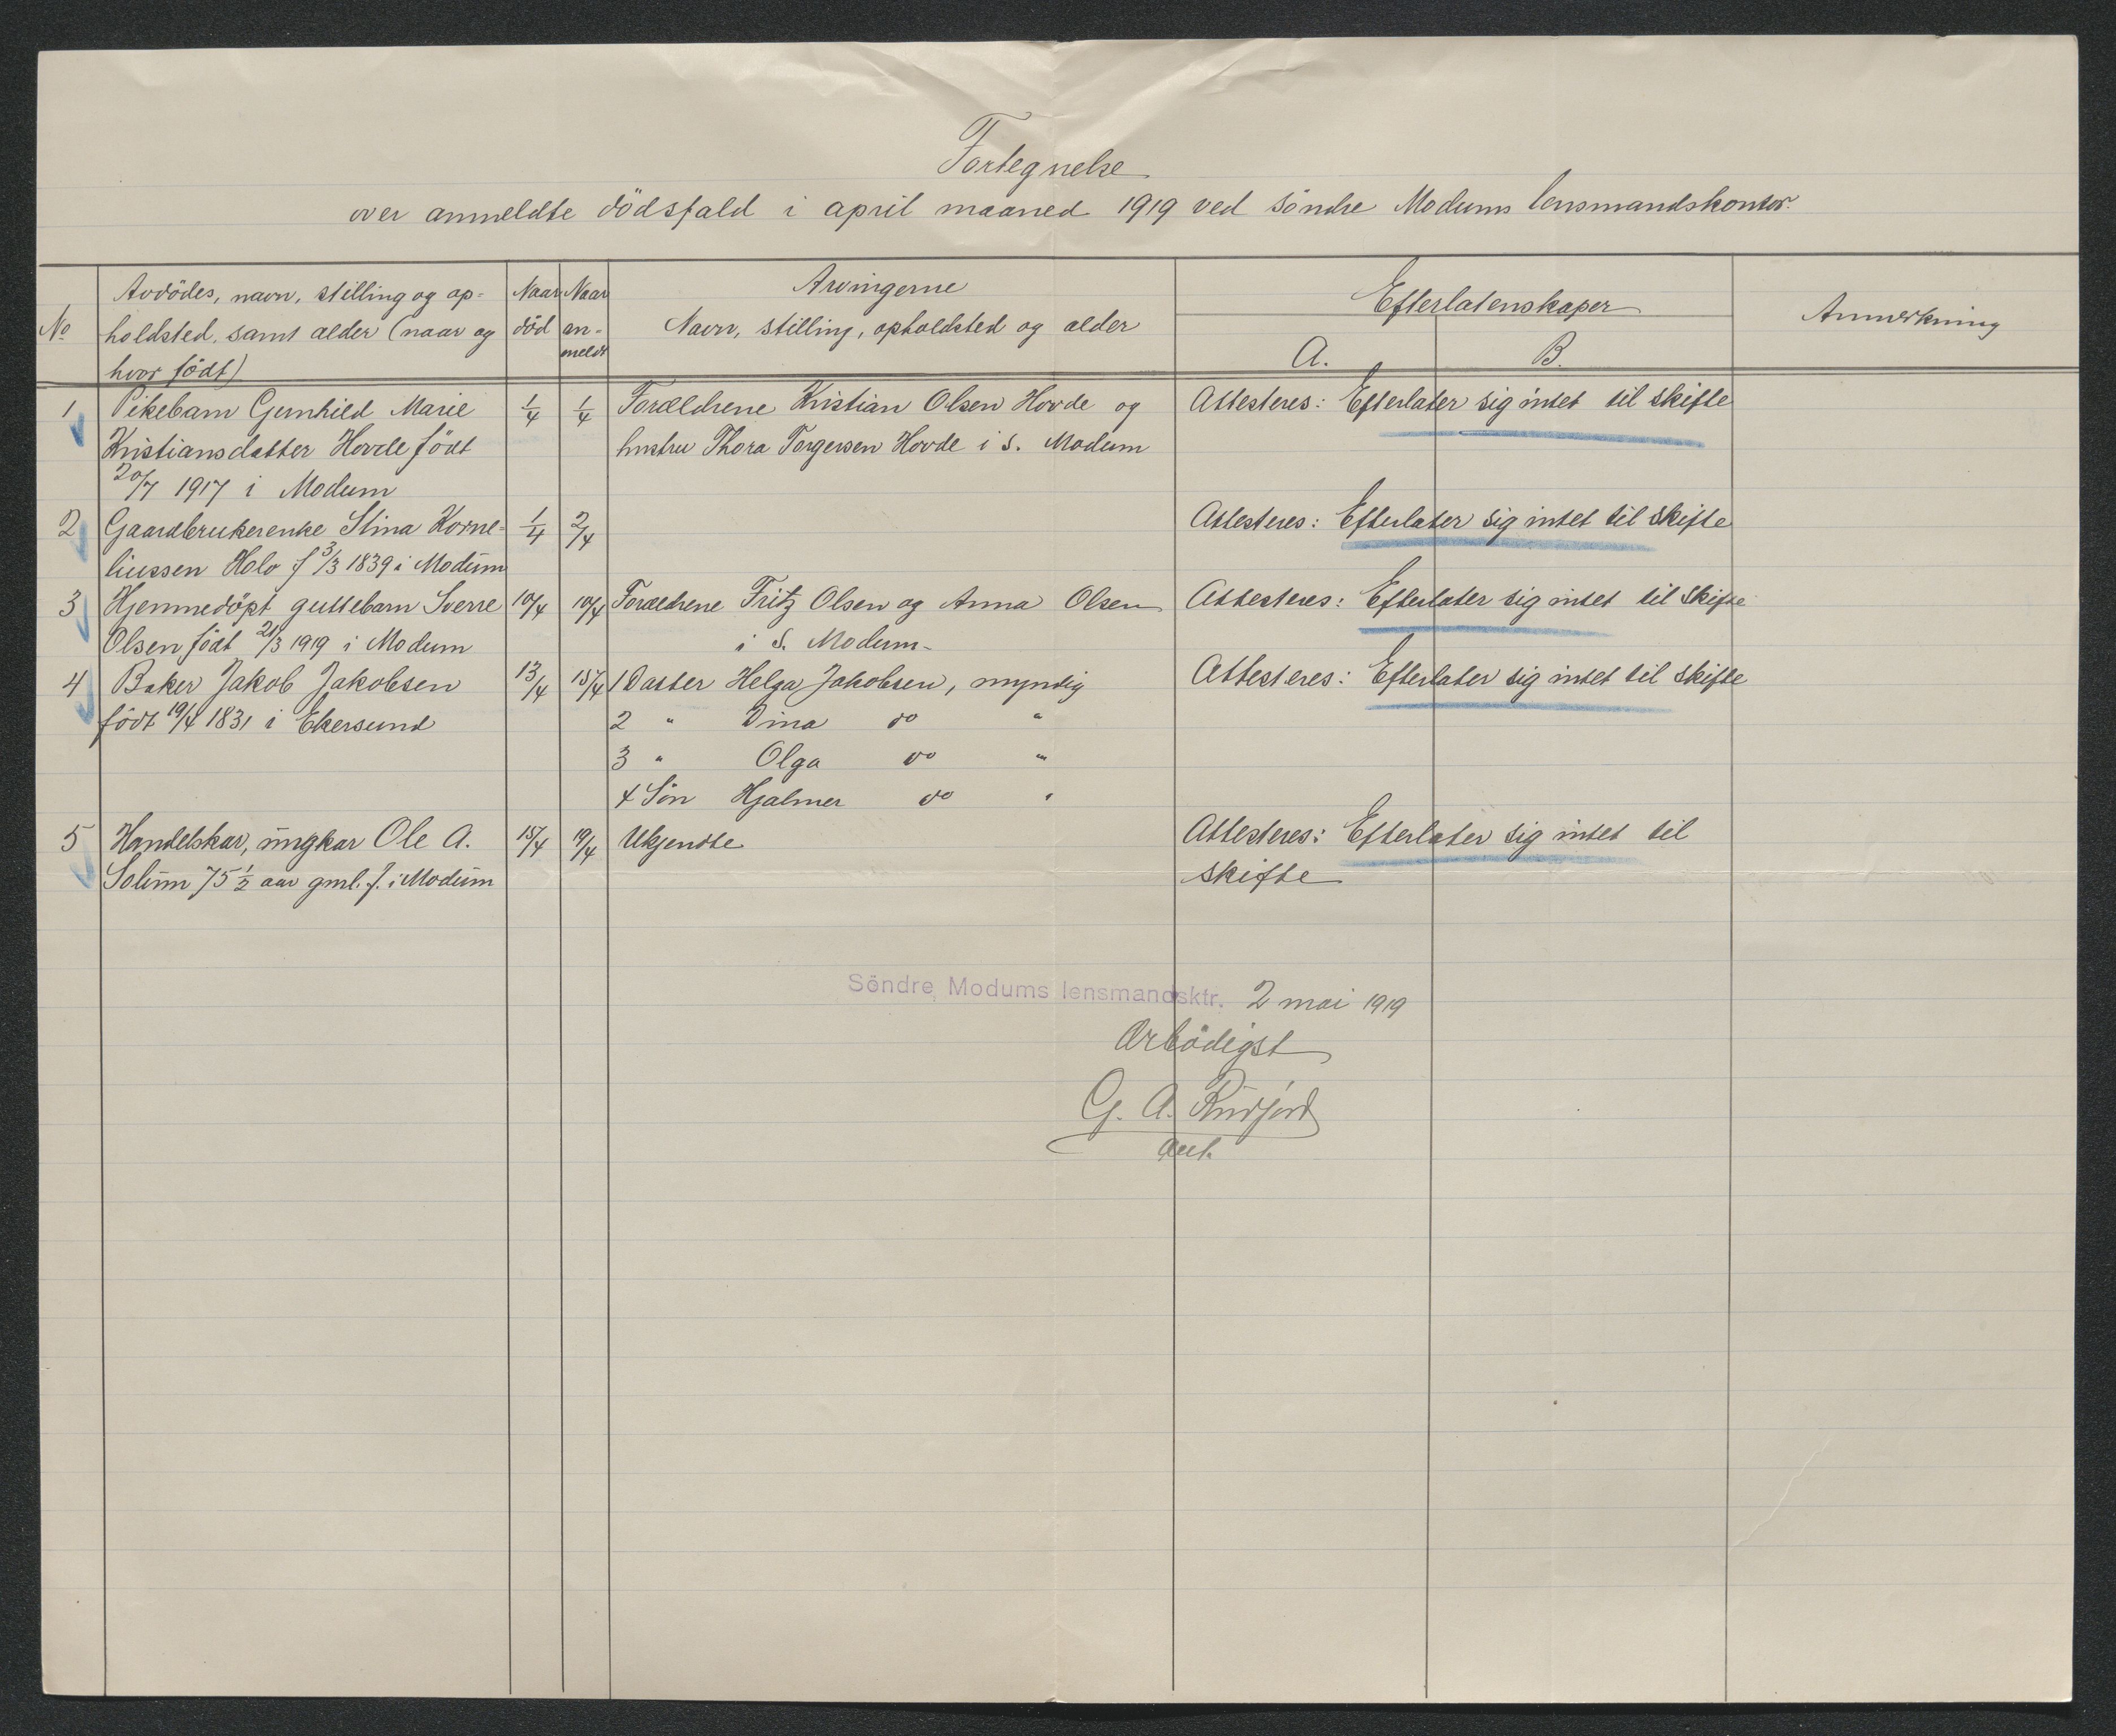 Fortegnelse
over anmeldte dödsfald i april maaned 1919 ved söndre Modums lensmandskontor.
No
Avdödes, navn, stilling og op-
holdsted, samt alder (naar og
hvor födt)
Naar
död
Naar
an-
meldt
Arvingerne
Navn, stilling, opholdsted og alder
Efterlatenskaper
A.
B.
Anmerkning
1 Pikebarn Gunhild Marie 1/4 1/4 Forældrene Kristian Olsen Hovde og Attesteres: Efterlater sig intet til skifte
Kristiansdatter Hovde födt hustru Thora Torgersen Hovde i S. Modum
20/7 1917 i Modum
2 Gaardbrukerenke Stina Korne- 1/4 2/4 Attesteres: Efterlater sig intet til skifte
liussen Holo f 3/3 1839 i Modum
3 Hjemmedöpt guttebarn Sverre 10/4 10/4 Forældrene Fritz Olsen og Anna Olsen Attesteres: Efterlater sig intet til skifte
Olsen födt 21/3 1919 i Modum i S. Modum-
4 Baker Jakob Jakobsen 13/4 15/4 1 Datter Helga Jakobsen, myndig Attesteres: Efterlater sig intet til skifte
födt 19/4 1831 i Ekersund 2 " Dina do "
3 " Olga do "
4 Sön Hjalmer do "
5 Handelskar, ungkar Ole A. 15/4 19/4 Ukjendte Attesteres: Efterlater sig intet til
Solum 75 1/2 aar gml. f. i Modum skifte
Söndre Modums lensmandsktr. 2 mai 1919
Ærbödigst
G. A.